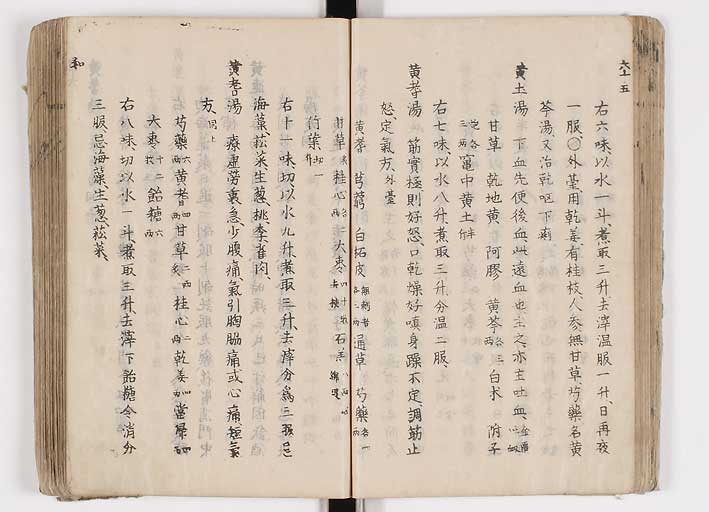 六ノ五
右六味以水一斗煮取三升去滓温服一升、日再夜
一服、〇外臺用乾姜有桂枝人參無甘草芍藥名黄
芩湯又治乾嘔下痢
黄土湯 下血先便後血此遠血也主之亦主吐血
甘草 乾地黄 阿膠 黄芩 白朮 附子
各三兩 竈中黄土半斤
右七味以水八升煮取三升分温二服、
黄耆湯 筋實極則好怒、口乾燥好嗔身躁不定調筋止
怒、定氣方、外臺
黄耆 芎藭 白柘皮 通草 芍藥各一兩
甘草 桂心 大枣 石羔
竹葉切一升
右十一味切以水九升煮取三升、去滓分爲三服忌
海藻、菘菜生葱、桃李雀肉、
黄耆湯 療虚勞裏急少腹痛氣引胸脇痛或心痛短氣
方同上
芍藥六兩 黄耆四兩 甘草二兩 桂心二兩 乾姜四兩 當㱕四兩
大棗十二枚 飴糖六兩
右八味切以水一斗煮取三升去滓下飴糖令消分
三服忌海藻生葱菘菜、
和